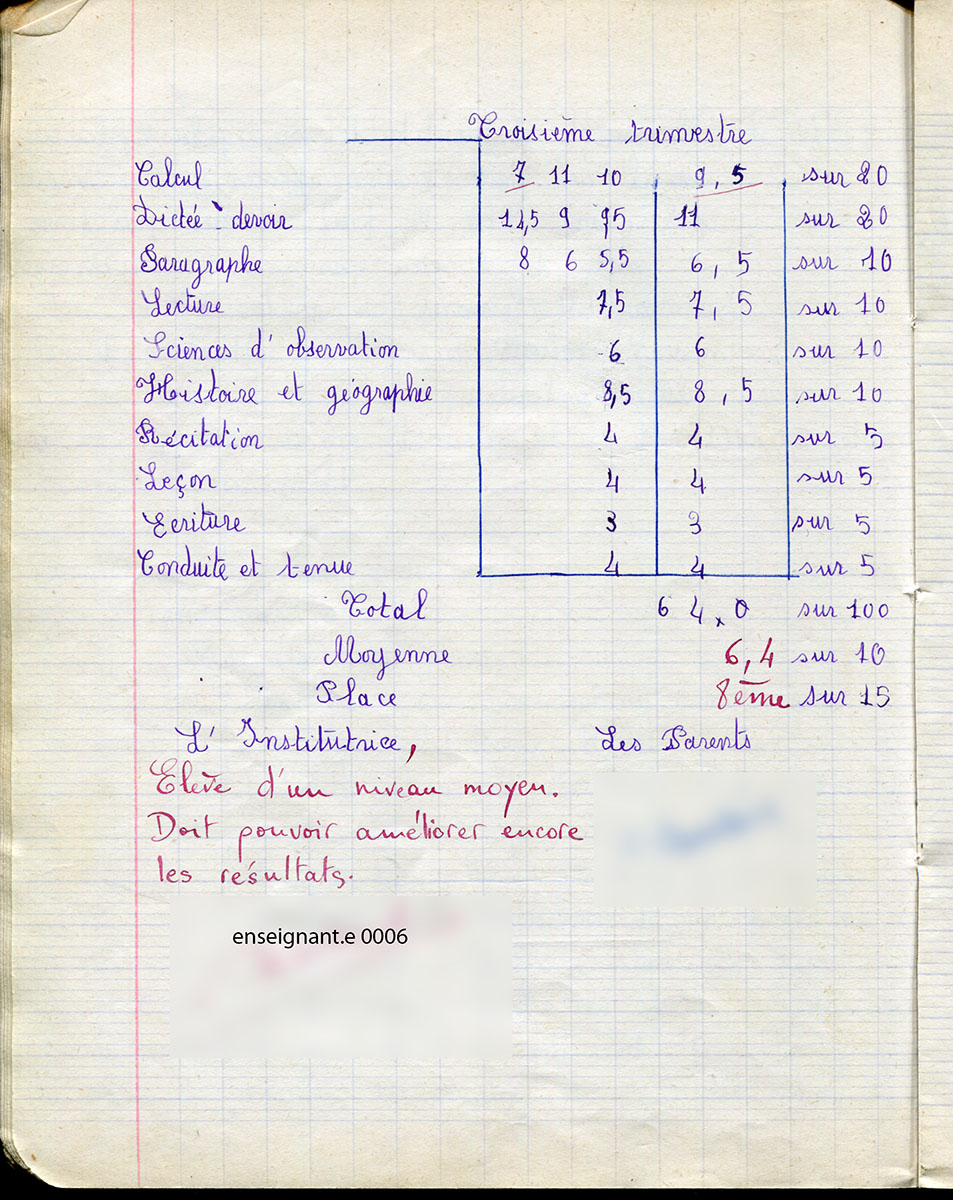 Troisième trimestre
Calcul 7 11 10 9,5 sur 20
Dictée : devoir 14,5 9 9,5 11 sur 20
Paragraphe 8 6 5,5 6,5 sur 10
Lecture 7,5 7,5 sur 10
Sciences d'observation 6 6 sur 10
Histoire et géographie 8,5 8,5 sur 10
Récitation 4 4 sur 5
Leçon 4 4 sur 5
Ecriture 3 3 sur 5
Conduite et tenue 4 4 sur 5
Total 64,0 sur 100
Moyenne 6,4 sur 10
Place 8ème sur 15
L'Institutrice, Les Parents
Elève d'un niveau moyen.
Doit pouvoir améliorer encore
les résultats.
enseignant.e 0006